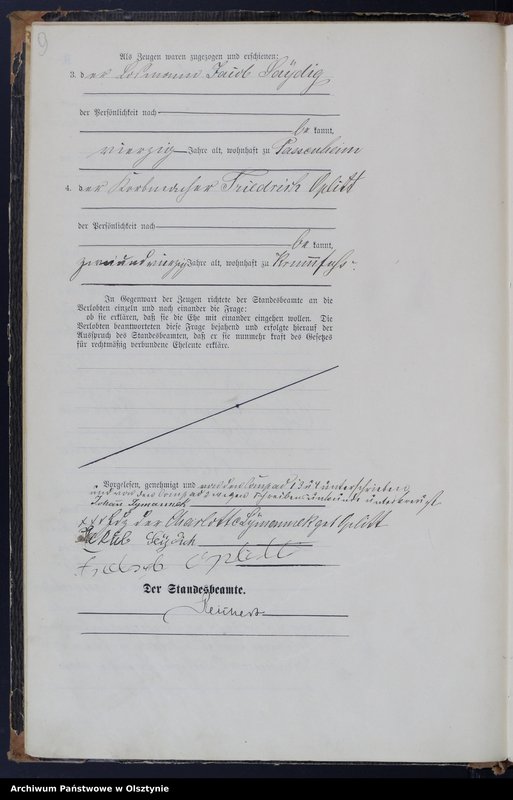 9
Als Zeugen waren zugezogen und erschienen:
3. der Losmann Jacob Saydig
der Persönlichkeit nach
be kannt,
vierzig Jahre alt, wohnhaft zu Passenheim
4. der Korbmacher Friedrich Oplitt
der Persönlichkeit nach
be kannt,
zweiundvierzig Jahre alt, wohnhaft zu
In Gegenwart der Zeugen richtete der Standesbeamte an die
Verlobten einzeln und nach einander die Frage:
ob sie erklären, daß sie die Ehe mit einander eingehen wollen. Die
Verlobten beantworteten diese Frage bejahend und erfolgte hierauf der
Ausspruch des Standesbeamten, daß er sie nunmehr kraft des Gesetzes
für rechtmäßig verbundene Eheleute erkläre.
Vorgelesen, genehmigt und von den unterschrieben
und von den wegen Schreibensunkunde unterkreuzt
Johann Symannek
xxx der Charlotte Symannek geb Oplitt
Jakob Seydich
Oplitt
Der Standesbeamte.
Reichert
Archiwum Państwowe w Olsztynie